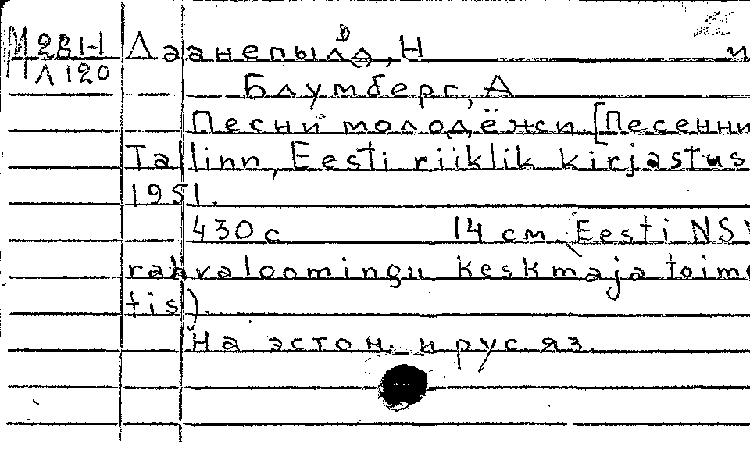 М 281-1 Лаанепыльд, Н и
Л 120
Блумберг, А
Песни молодёжи [Песенни
Tallinn, Eesti riiklik kirjastus
1951.
430 с 14 см. (Eesti NSV
rahvaloomingu keskmaja toime
tis).
На эстон. и рус яз.